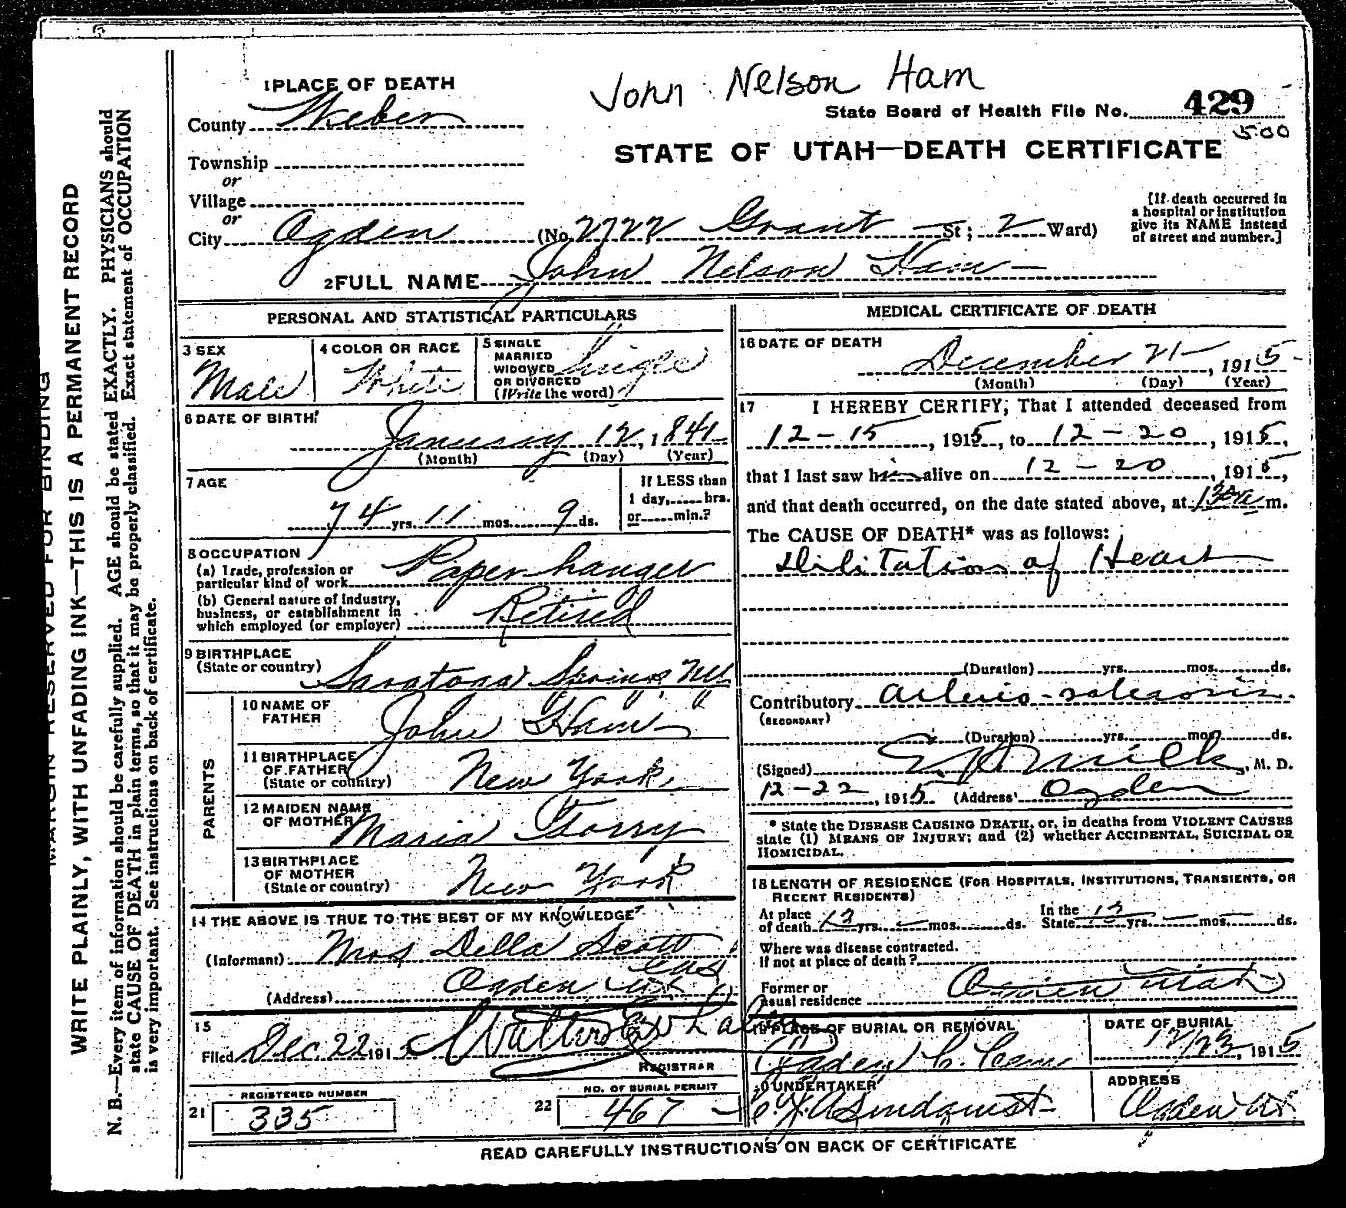 John Nelson Ham
1 PLACE OF DEATH
State Board of Health File No. 429
County Weber
500
STATE OF UTAH—DEATH CERTIFICATE
Township
or
Village
or
City Ogden (No. 2722 Grant St; 2 Ward)
[If death occurred in
a hospital or institution
give its NAME instead
of street and number.]
2 FULL NAME John Nelson Ham
PERSONAL AND STATISTICAL PARTICULARS
3 SEX
Male
4 COLOR OR RACE
White
5 SINGLE
MARRIED
WIDOWED
OR DIVORCED
(Write the word)
Single
6 DATE OF BIRTH
January 12, 1841
(Month) (Day) (Year)
7 AGE
74 yrs. 11 mos. 9 ds.
If LESS than
1 day, hrs.
or min.?
8 OCCUPATION
(a) Trade, profession or
particular kind of work Paper hanger
(b) General nature of Industry,
business, or establishment in
which employed (or employer) Retired
9 BIRTHPLACE
(State or country) Saratoga Springs NY
PARENTS
10 NAME OF
FATHER
John "Ham"
11 BIRTHPLACE
OF FATHER
(State or country) New York
12 MAIDEN NAME
OF MOTHER Maria
13 BIRTHPLACE
OF MOTHER
(State or country) New York
14 THE ABOVE IS TRUE TO THE BEST OF MY KNOWLEDGE
(Informant) Mrs Della Scott
(Address) Ogden Ut
15
Filed Dec. 22 1915 Walter
REGISTRAR
REGISTERED NUMBER
21 335
NO. OF BURIAL PERMIT
22 467
MEDICAL CERTIFICATE OF DEATH
16 DATE OF DEATH
December 21, 1915
(Month) (Day) (Year)
17 I HEREBY CERTIFY, That I attended deceased from
12-15, 1915, to 12-20, 1915,
that I last saw him alive on 12-20, 1915,
and that death occurred, on the date stated above, at 130 a m.
The CAUSE OF DEATH* was as follows:
Dilitation of Heart
(Duration) yrs. mos. ds.
Contributory
(SECONDARY)
(Duration) yrs. mos. ds.
(Signed) M. D.
12-22, 1915 (Address) Ogden
* State the DISEASE CAUSING DEATH, or, in deaths from VIOLENT CAUSES
state (1) MEANS OF INJURY; and (2) whether ACCIDENTAL, SUICIDAL OR
HOMICIDAL.
18 LENGTH OF RESIDENCE (FOR HOSPITALS, INSTITUTIONS, TRANSIENTS, OR
RECENT RESIDENTS)
At place
of death 13 yrs. - mos. ds.
In the
State 13 yrs. - mos. ds.
Where was disease contracted.
If not at place of death?
Former or
usual residence Ogden Utah
19 PLACE OF BURIAL OR REMOVAL
Ogden C. Cem
DATE OF BURIAL
12/23, 1915
20 UNDERTAKER
Lindquist
ADDRESS
Ogden Ut
READ CAREFULLY INSTRUCTIONS ON BACK OF CERTIFICATE
MARGIN RESERVED FOR BINDING
WRITE PLAINLY, WITH UNFADING INK—THIS IS A PERMANENT RECORD
N. B.—Every item of information should be carefully supplied. AGE should be stated EXACTLY. PHYSICIANS should
state CAUSE OF DEATH in plain terms, so that it may be properly classified. Exact statement of OCCUPATION
is very important. See instructions on back of certificate.